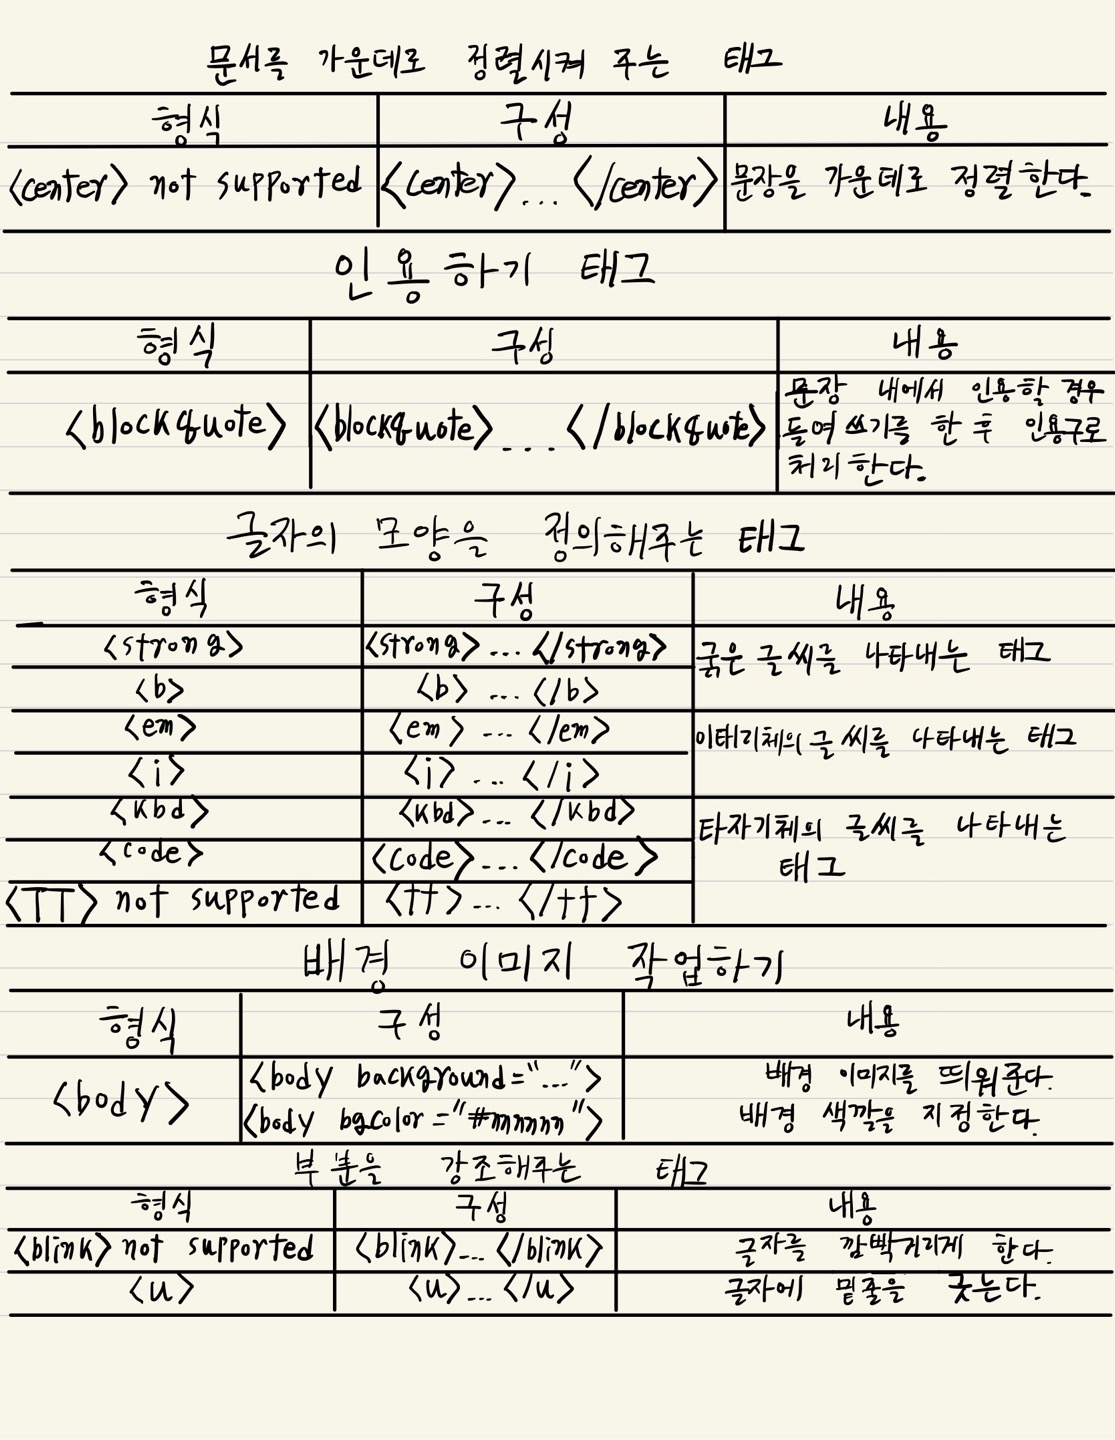 문서를 가운데로 정렬시켜 주는 태그
형식 구성 내용
<center> not supported <center>... </center> 문장을 가운데로 정렬한다.
인용하기 태그
형식 구성 내용
<blockquote> <blockquote>.... </blockquote> 문장 내에서 인용할 경우
들여쓰기를 한 후 인용구로
처리한다.
글자의 모양을 정의해주는 태그
형식 구성 내용
<strong> <strong>... </strong> 굵은 글씨를 나타내는 태그
<b> <b> ... </b>
<em> <em> ... </em> 이태리체의 글씨를 나타내는 태그
<i> <i> ... </i>
<kbd> <kbd>... </kbd> 타자기체의 글씨를 나타내는
태그
<code> <code>... </code>
<TT> not supported <tt>... </tt>
배경 이미지 작업하기
형식 구성 내용
<body> <body background="..."> 배경 이미지를 띄워준다.
<body bgcolor="#nnnnnn"> 배경 색깔을 지정한다.
부분을 강조해주는 태그
형식 구성 내용
<blink> not supported <blink>... </blink> 글자를 깜빡거리게 한다.
<u> <u>... </u> 글자에 밑줄을 긋는다.